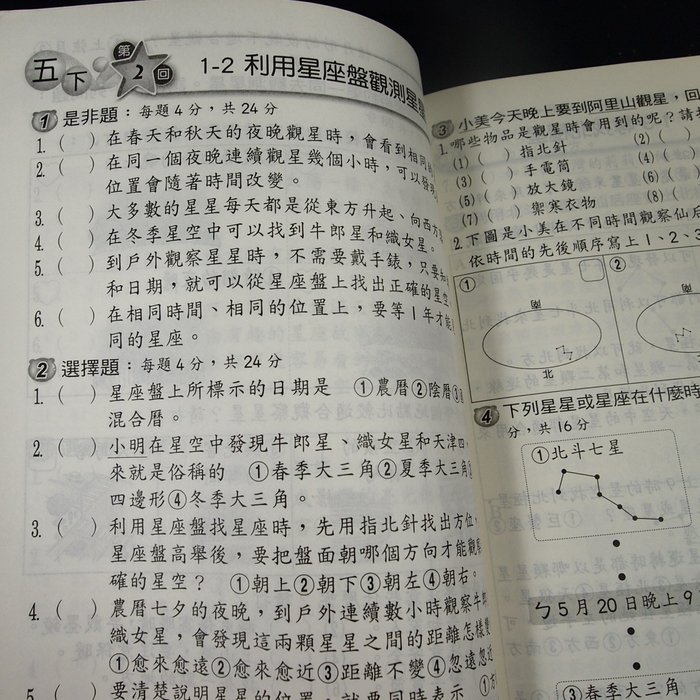 五下
第2回
1-2 利用星座盤觀測星
1 是非題：每題4分，共24分
1.（ ）在春天和秋天的夜晚觀星時，會看到相同的
2.（ ）在同一個夜晚連續觀星幾個小時，可以發現
位置會隨著時間改變。
3.（ ）大多數的星星每天都是從東方升起、向西方
4.（ ）在冬季星空中可以找到牛郎星和織女星。
5.（ ）到戶外觀察星星時，不需要戴手錶，只要知
和日期，就可以從星座盤上找出正確的星空
6.（ ）在相同時間、相同的位置上，要等1年才能
同的星座。
2 選擇題：每題4分，共24分
1.（ ）星座盤上所標示的日期是 ①農曆②陰曆③
混合曆。
2.（ ）小明在星空中發現牛郎星、織女星和天津四，
來就是俗稱的 ①春季大三角②夏季大三角
四邊形④冬季大三角。
3.（ ）利用星座盤找星座時，先用指北針找出方位，
星座盤高舉後，要把盤面朝哪個方向才能觀察
確的星空？ ①朝上②朝下③朝左④朝右。
4.（ ）農曆七夕的夜晚，到戶外連續數小時觀察牛郎
織女星，會發現這兩顆星星之間的距離怎樣變
①愈來愈遠②愈來愈近③距離不變④忽遠忽近
5.（ ）要清楚說明星星的位置
就同時表示 ①方
3 小美今天晚上要到阿里山觀星，回
1.哪些物品是觀星時會用到的呢？請
(1)（ ）指北針 (2)（
(3)（ ）手電筒 (4)（
(5)（ ）放大鏡 (6)（
(7)（ ）禦寒衣物 (8)（
2.下圖是小美在不同時間觀察仙后
依時間的先後順序寫上1、2、3
①
②
南
北
4 下列星星或星座在什麼時
分，共16分
①北斗七星
ㄅ5月20日晚上9
③春季大三角